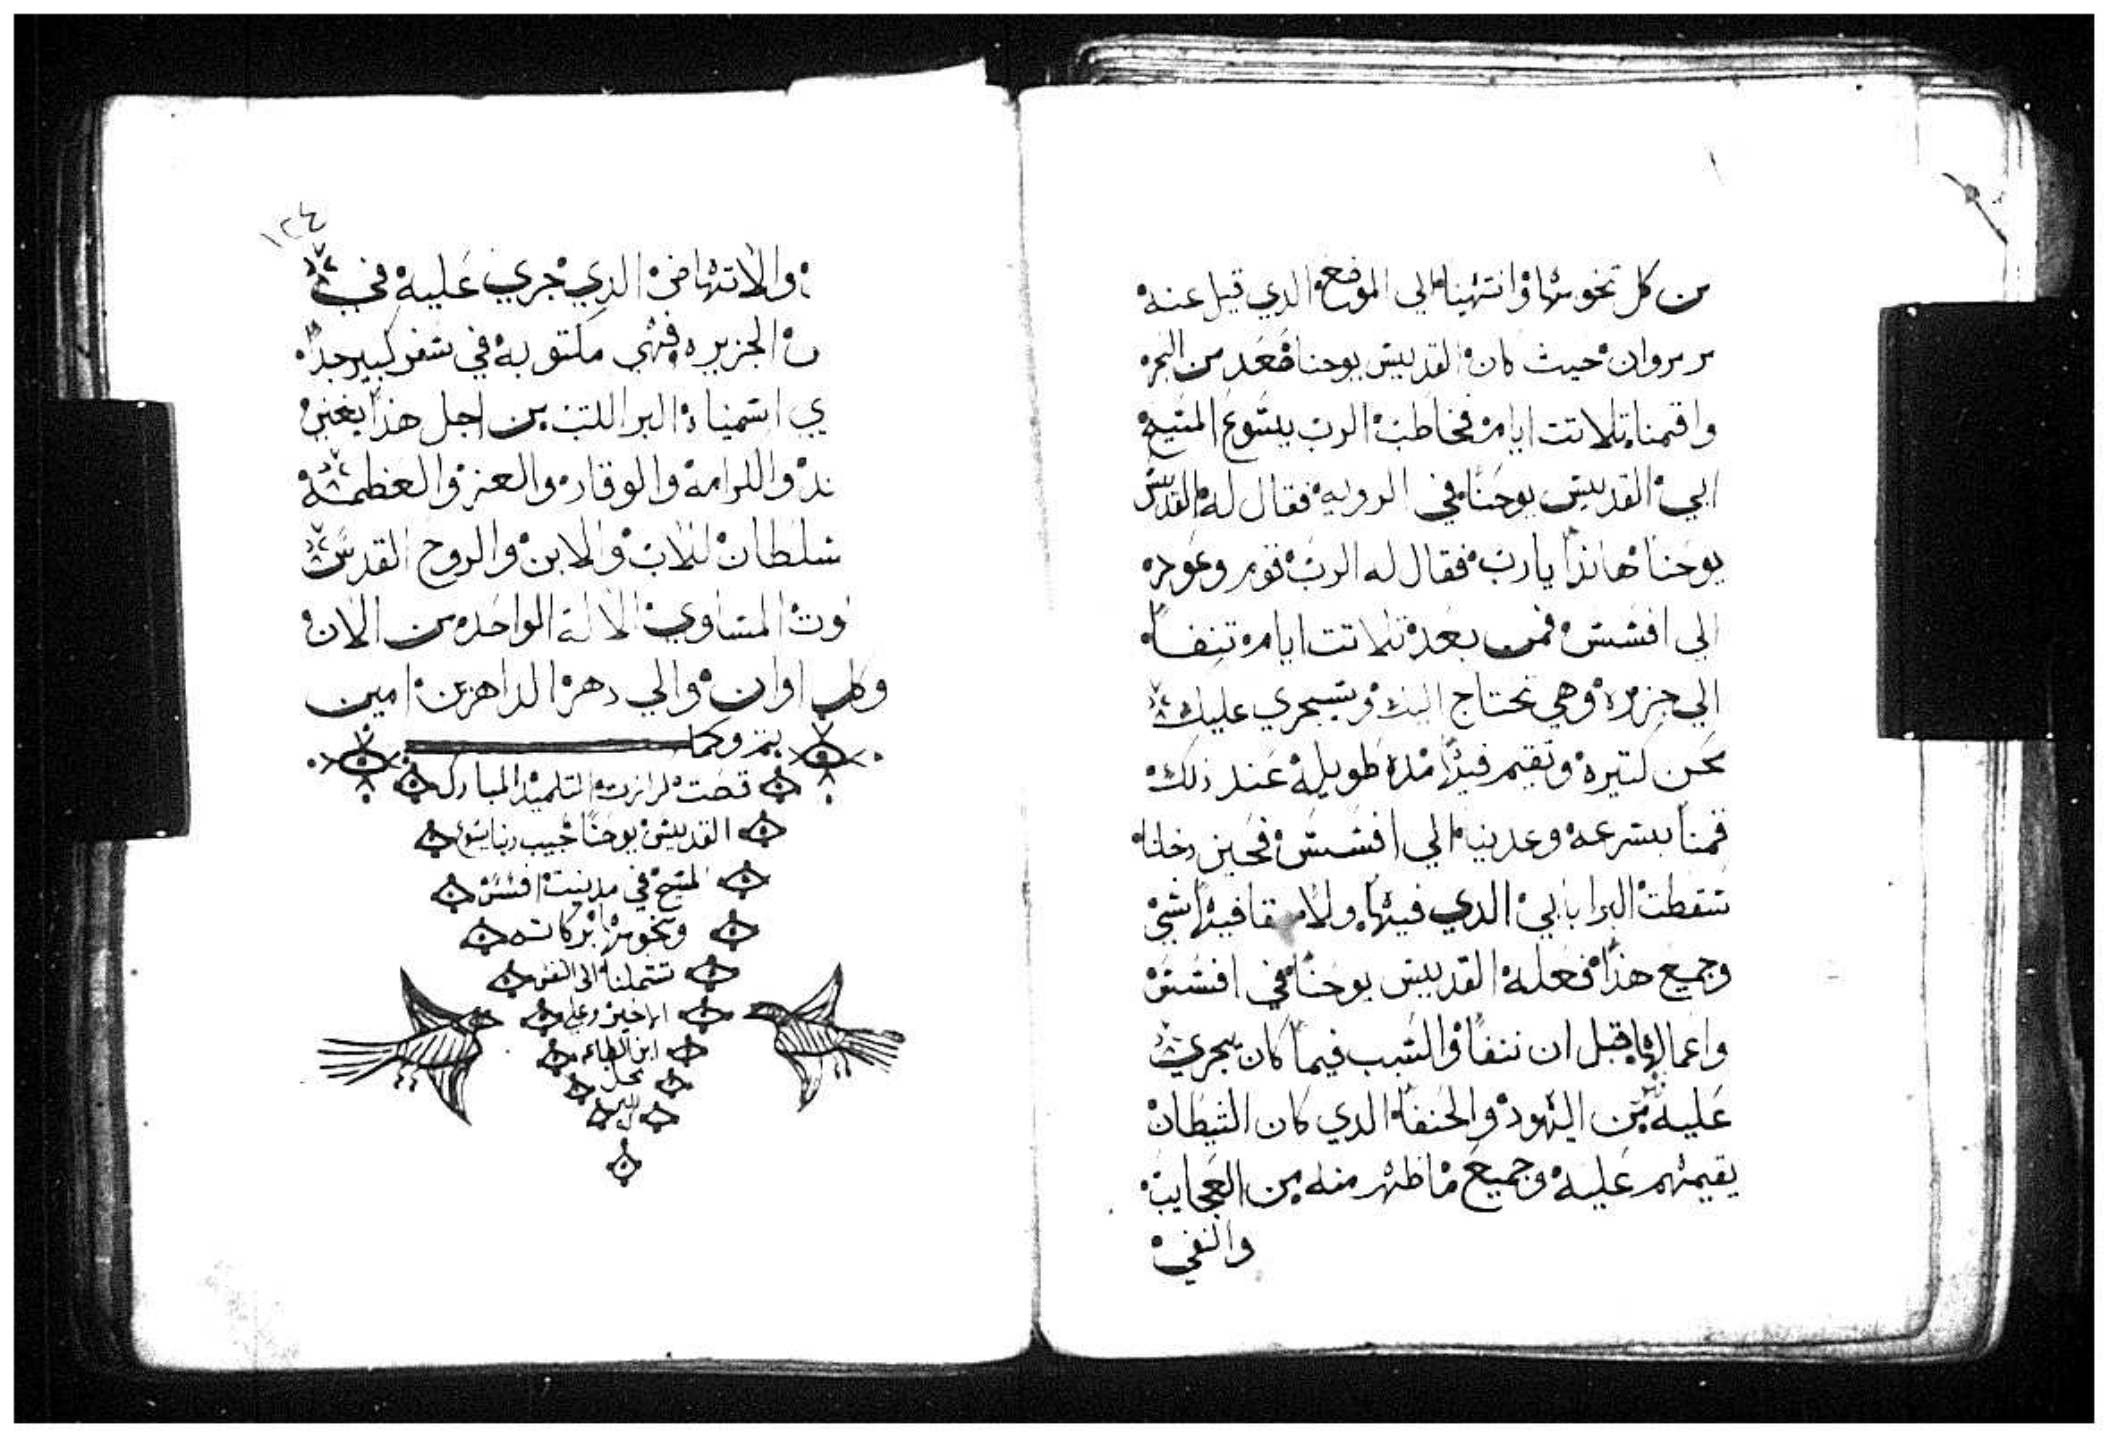 من كل تخومها وانتهينا الي الموضع الدي قيل عنه
مرمروان حيث كان القديس يوحنا صعد من البحر
واقمنا تلاتت ايام فخاطب الرب يسوع المسيح
ابي القديس يوحنا في الرويه فقال له القديس
يوحنا هاندا يارب فقال له الرب قوم وعود
الي افسس فمن بعد تلاتت ايام تنفا
الي جزيره وهي تحتاج اليك وسيجري عليك
محن كتيره وتقيم فيها مده طويله عند دلك
قمنا بسرعه وعدينا الي افسس فحين دخلنا
سقطت البرابا الدي فيها ولا بقا فيها شي
وجميع هدا فعله القديس يوحنا في افسس
واعمالها قبل ان ننفا والسبب فيما كان يجري
عليه من اليهود والحنفا الدي كان الشيطان
يقيمهم عليه وجميع ما ظهر منه من العجايب
والنفي
١٢٤
والاتنهاض الدي جري عليه في
الجزيره فهي مكتوبه في سفر كبير جدا
اسميناه البر اللتب من اجل هدا بغير
والكرامه والوقار والعز والعظمه
سلطان للاب والابن والروح القدس
وت المساوي الاله الواحد من الان
وكل اوان والي دهر الداهرين امين
قصت كرازت التلميد المبارك
القديس يوحنا حبيب ربنا يسوع
المسيح في مدينت افسس
وتخومها بركاته
تشملنا الي النفس
الاخير وعلي
ابن الطاعه
تحل